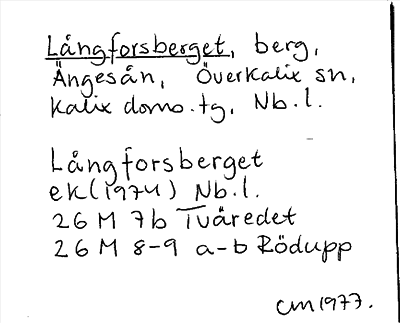 Långforsberget, berg,
Ängesån, Överkalix sn,
Kalix doms.tg, Nb.l.
Långforsberget
ek(1974) Nb.l.
26 M 7b Tvåredet
26 M 8-9 a-b Rödupp
CM 1977.